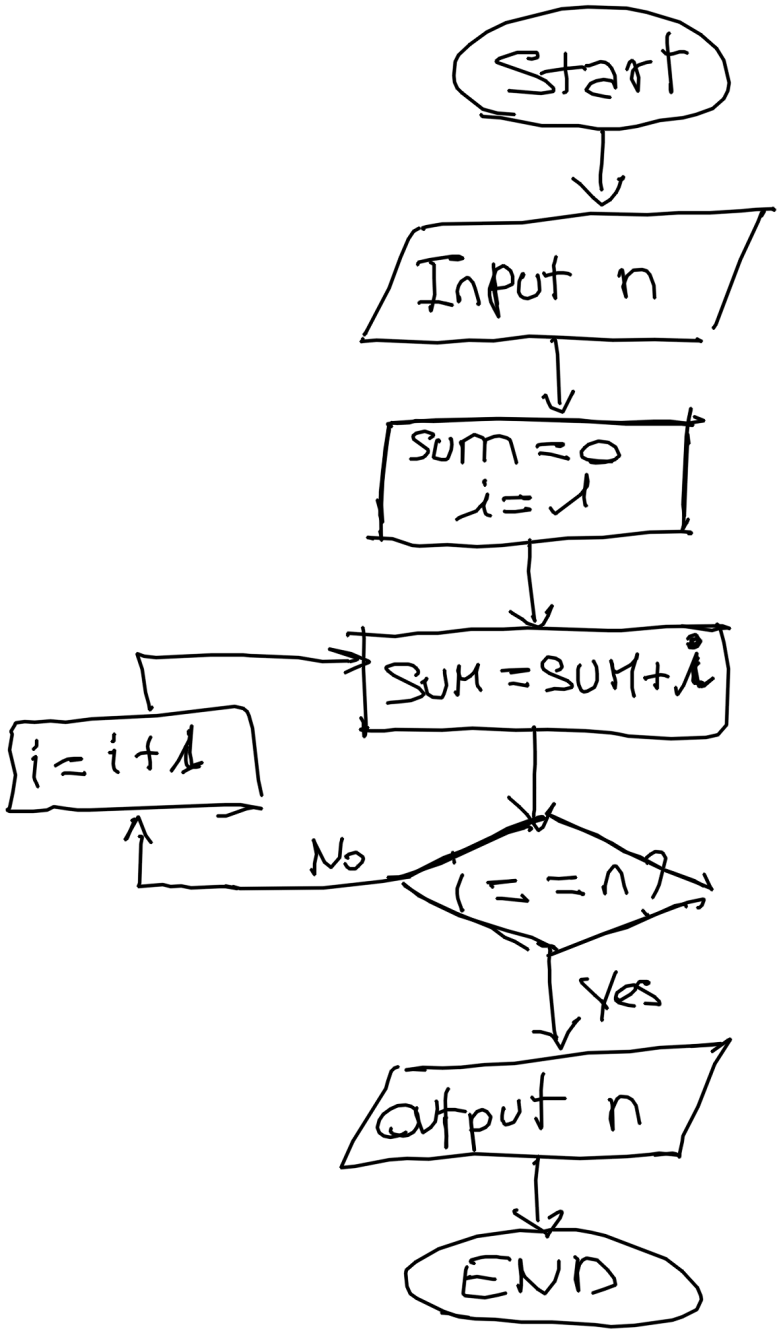 Start
Input n
sum = 0
i = 1
SUM = SUM + i
i = i + 1
No
i = = n ?
Yes
Output n
END